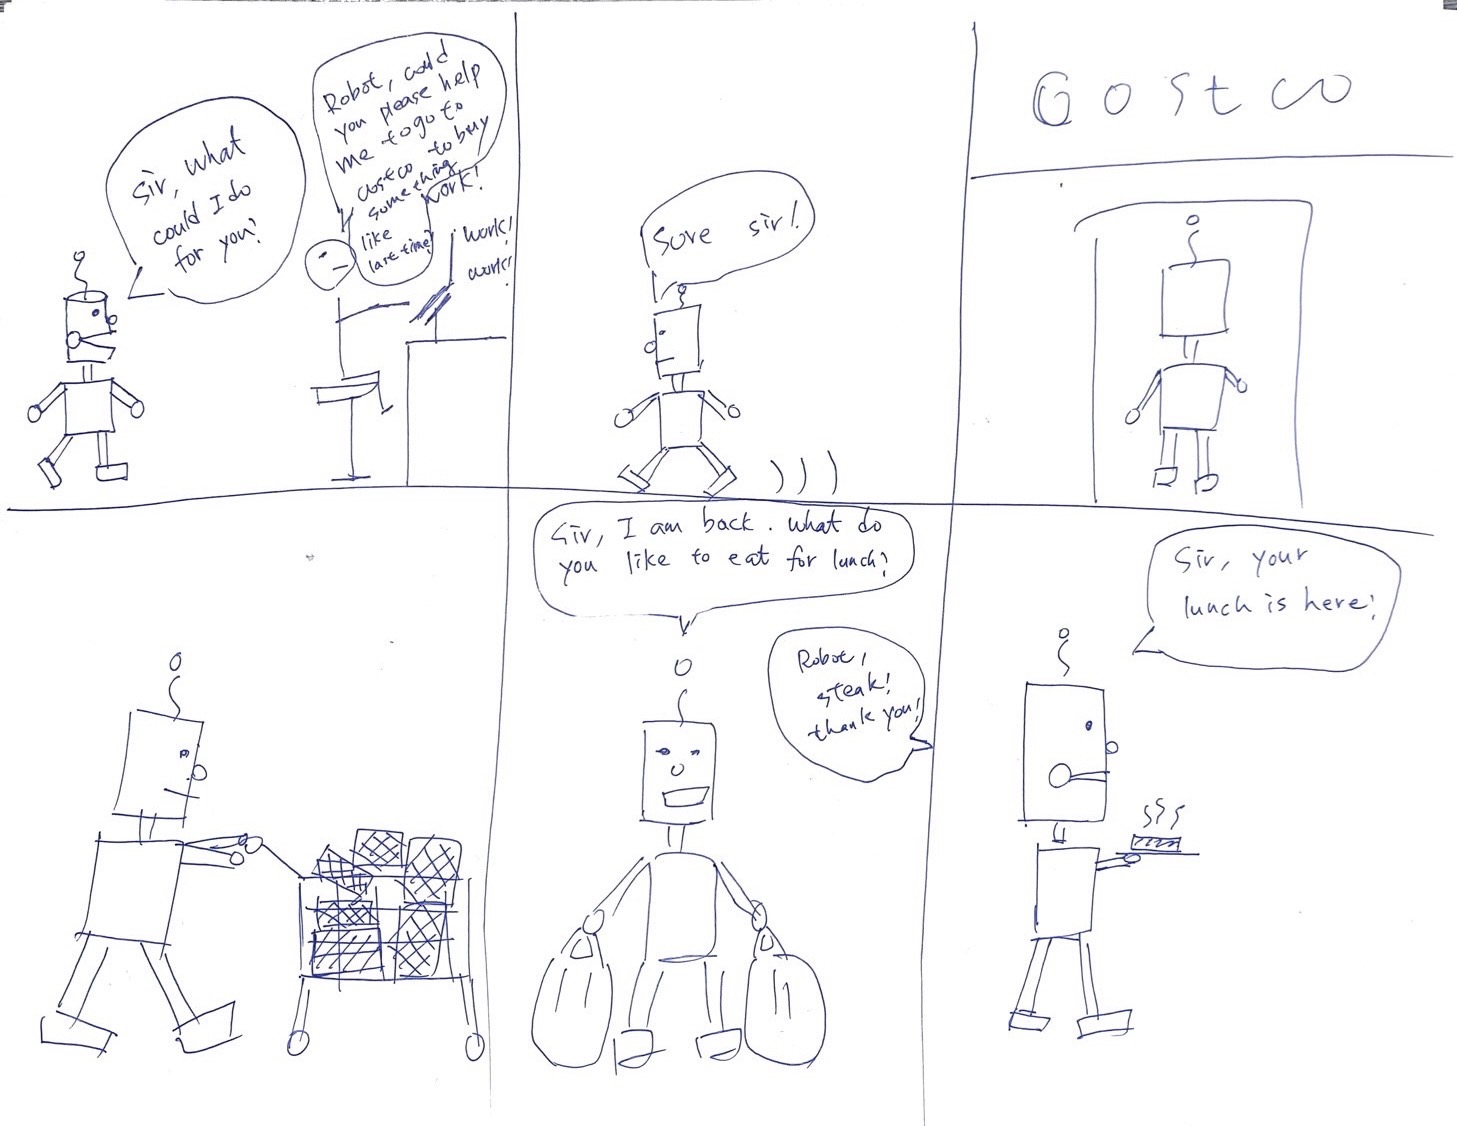 Sir, what
could I do
for you?
Robot, could
you please help
me to go to
costco to buy
something
like
last time?
work!
work!
work!
Sure sir!
Costco
Sir, I am back. what do
you like to eat for lunch?
Robot,
steak!
thank you!
Sir, your
lunch is here!